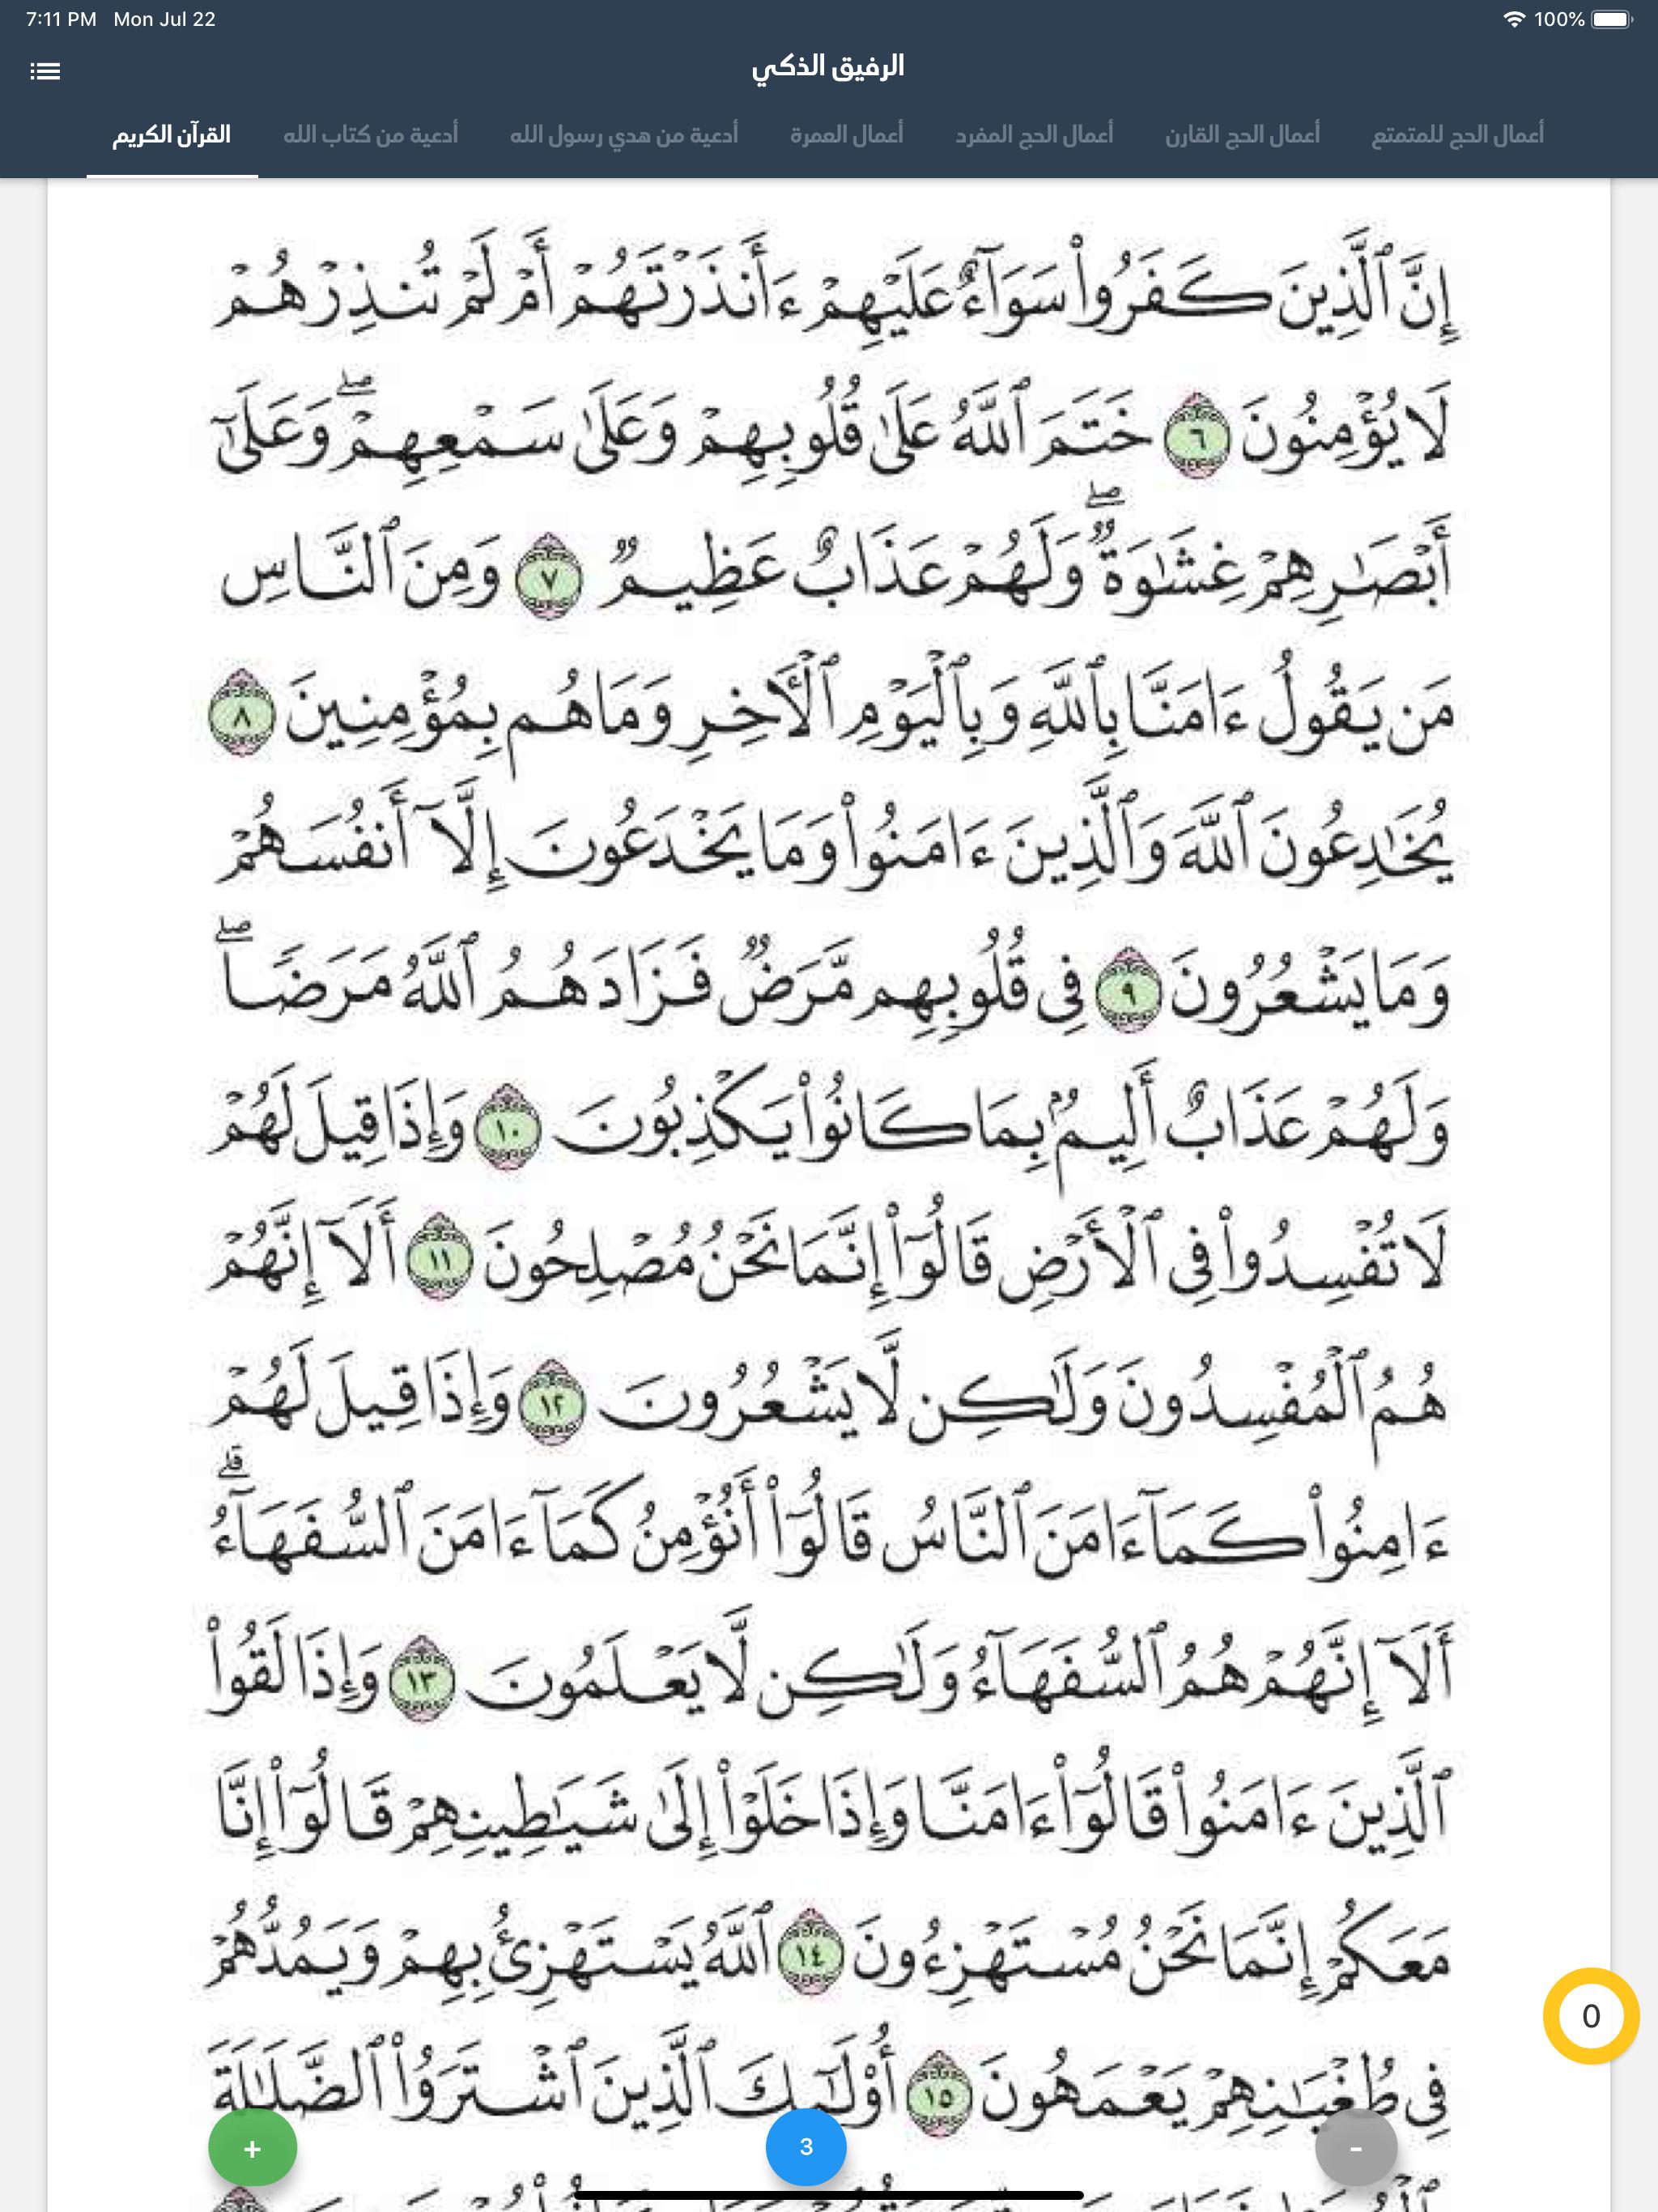 7:11 PM Mon Jul 22 100%
الرفيق الذكي
أعمال الحج للمتمتع أعمال الحج القارن أعمال الحج المفرد أعمال العمرة أدعية من هدي رسول الله أدعية من كتاب الله القرآن الكريم
إِنَّ ٱلَّذِينَ كَفَرُوا۟ سَوَآءٌ عَلَيْهِمْ ءَأَنذَرْتَهُمْ أَمْ لَمْ تُنذِرْهُمْ
لَا يُؤْمِنُونَ ٦ خَتَمَ ٱللَّهُ عَلَىٰ قُلُوبِهِمْ وَعَلَىٰ سَمْعِهِمْ ۖ وَعَلَىٰٓ
أَبْصَـٰرِهِمْ غِشَـٰوَةٌ ۖ وَلَهُمْ عَذَابٌ عَظِيمٌ ٧ وَمِنَ ٱلنَّاسِ
مَن يَقُولُ ءَامَنَّا بِٱللَّهِ وَبِٱلْيَوْمِ ٱلْـَٔاخِرِ وَمَا هُم بِمُؤْمِنِينَ ٨
يُخَـٰدِعُونَ ٱللَّهَ وَٱلَّذِينَ ءَامَنُوا۟ وَمَا يَخْدَعُونَ إِلَّآ أَنفُسَهُمْ
وَمَا يَشْعُرُونَ ٩ فِى قُلُوبِهِم مَّرَضٌ فَزَادَهُمُ ٱللَّهُ مَرَضًا ۖ
وَلَهُمْ عَذَابٌ أَلِيمٌۢ بِمَا كَانُوا۟ يَكْذِبُونَ ١٠ وَإِذَا قِيلَ لَهُمْ
لَا تُفْسِدُوا۟ فِى ٱلْأَرْضِ قَالُوٓا۟ إِنَّمَا نَحْنُ مُصْلِحُونَ ١١ أَلَآ إِنَّهُمْ
هُمُ ٱلْمُفْسِدُونَ وَلَـٰكِن لَّا يَشْعُرُونَ ١٢ وَإِذَا قِيلَ لَهُمْ
ءَامِنُوا۟ كَمَآ ءَامَنَ ٱلنَّاسُ قَالُوٓا۟ أَنُؤْمِنُ كَمَآ ءَامَنَ ٱلسُّفَهَآءُ ۗ
أَلَآ إِنَّهُمْ هُمُ ٱلسُّفَهَآءُ وَلَـٰكِن لَّا يَعْلَمُونَ ١٣ وَإِذَا لَقُوا۟
ٱلَّذِينَ ءَامَنُوا۟ قَالُوٓا۟ ءَامَنَّا وَإِذَا خَلَوْا۟ إِلَىٰ شَيَـٰطِينِهِمْ قَالُوٓا۟ إِنَّا
مَعَكُمْ إِنَّمَا نَحْنُ مُسْتَهْزِءُونَ ١٤ ٱللَّهُ يَسْتَهْزِئُ بِهِمْ وَيَمُدُّهُمْ
0
فِى طُغْيَـٰنِهِمْ يَعْمَهُونَ ١٥ أُو۟لَـٰٓئِكَ ٱلَّذِينَ ٱشْتَرَوُا۟ ٱلضَّلَـٰلَةَ
+ 3 -